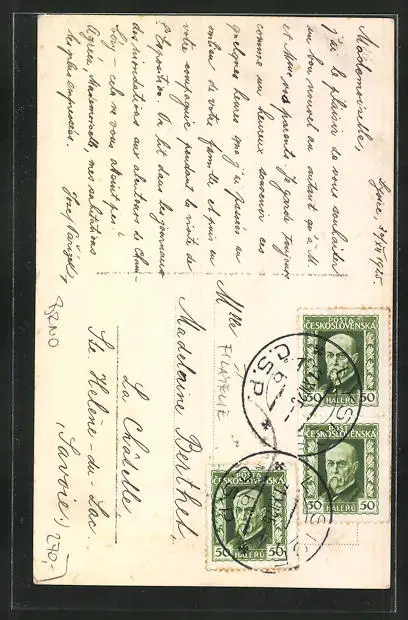 30/XII 1925.
Mademoiselle,
j'ai le plaisir de vous souhaiter
un bon nouvel an autant qu'à M.
et Mme vos parents. Je garde toujours
comme un heureux souvenir ces
quelques heures que j'ai passées au
milieu de votre famille et puis en
votre compagnie pendant la visite de
l'Exposition. On lit dans les journaux
des inondations aux alentours de Cham-
béry - cela ne vous atteint pas?
Agréez, Mademoiselle, mes salutations
les plus empressées.
Josef
Mlle
Madelaine Berthet,
La Châtelle
Ste Helène-du-Lac
(Savoie)
BRNO
FILATELIE
290,-
POSTA
ČESKOSLOVENSKA
50 50
HALERŮ
POSTA
ČESKOSLOVENSKA
50 50
HALERŮ
POSTA
ČESKOSLOVENSKA
50 50
HALERŮ
Č.S.P.